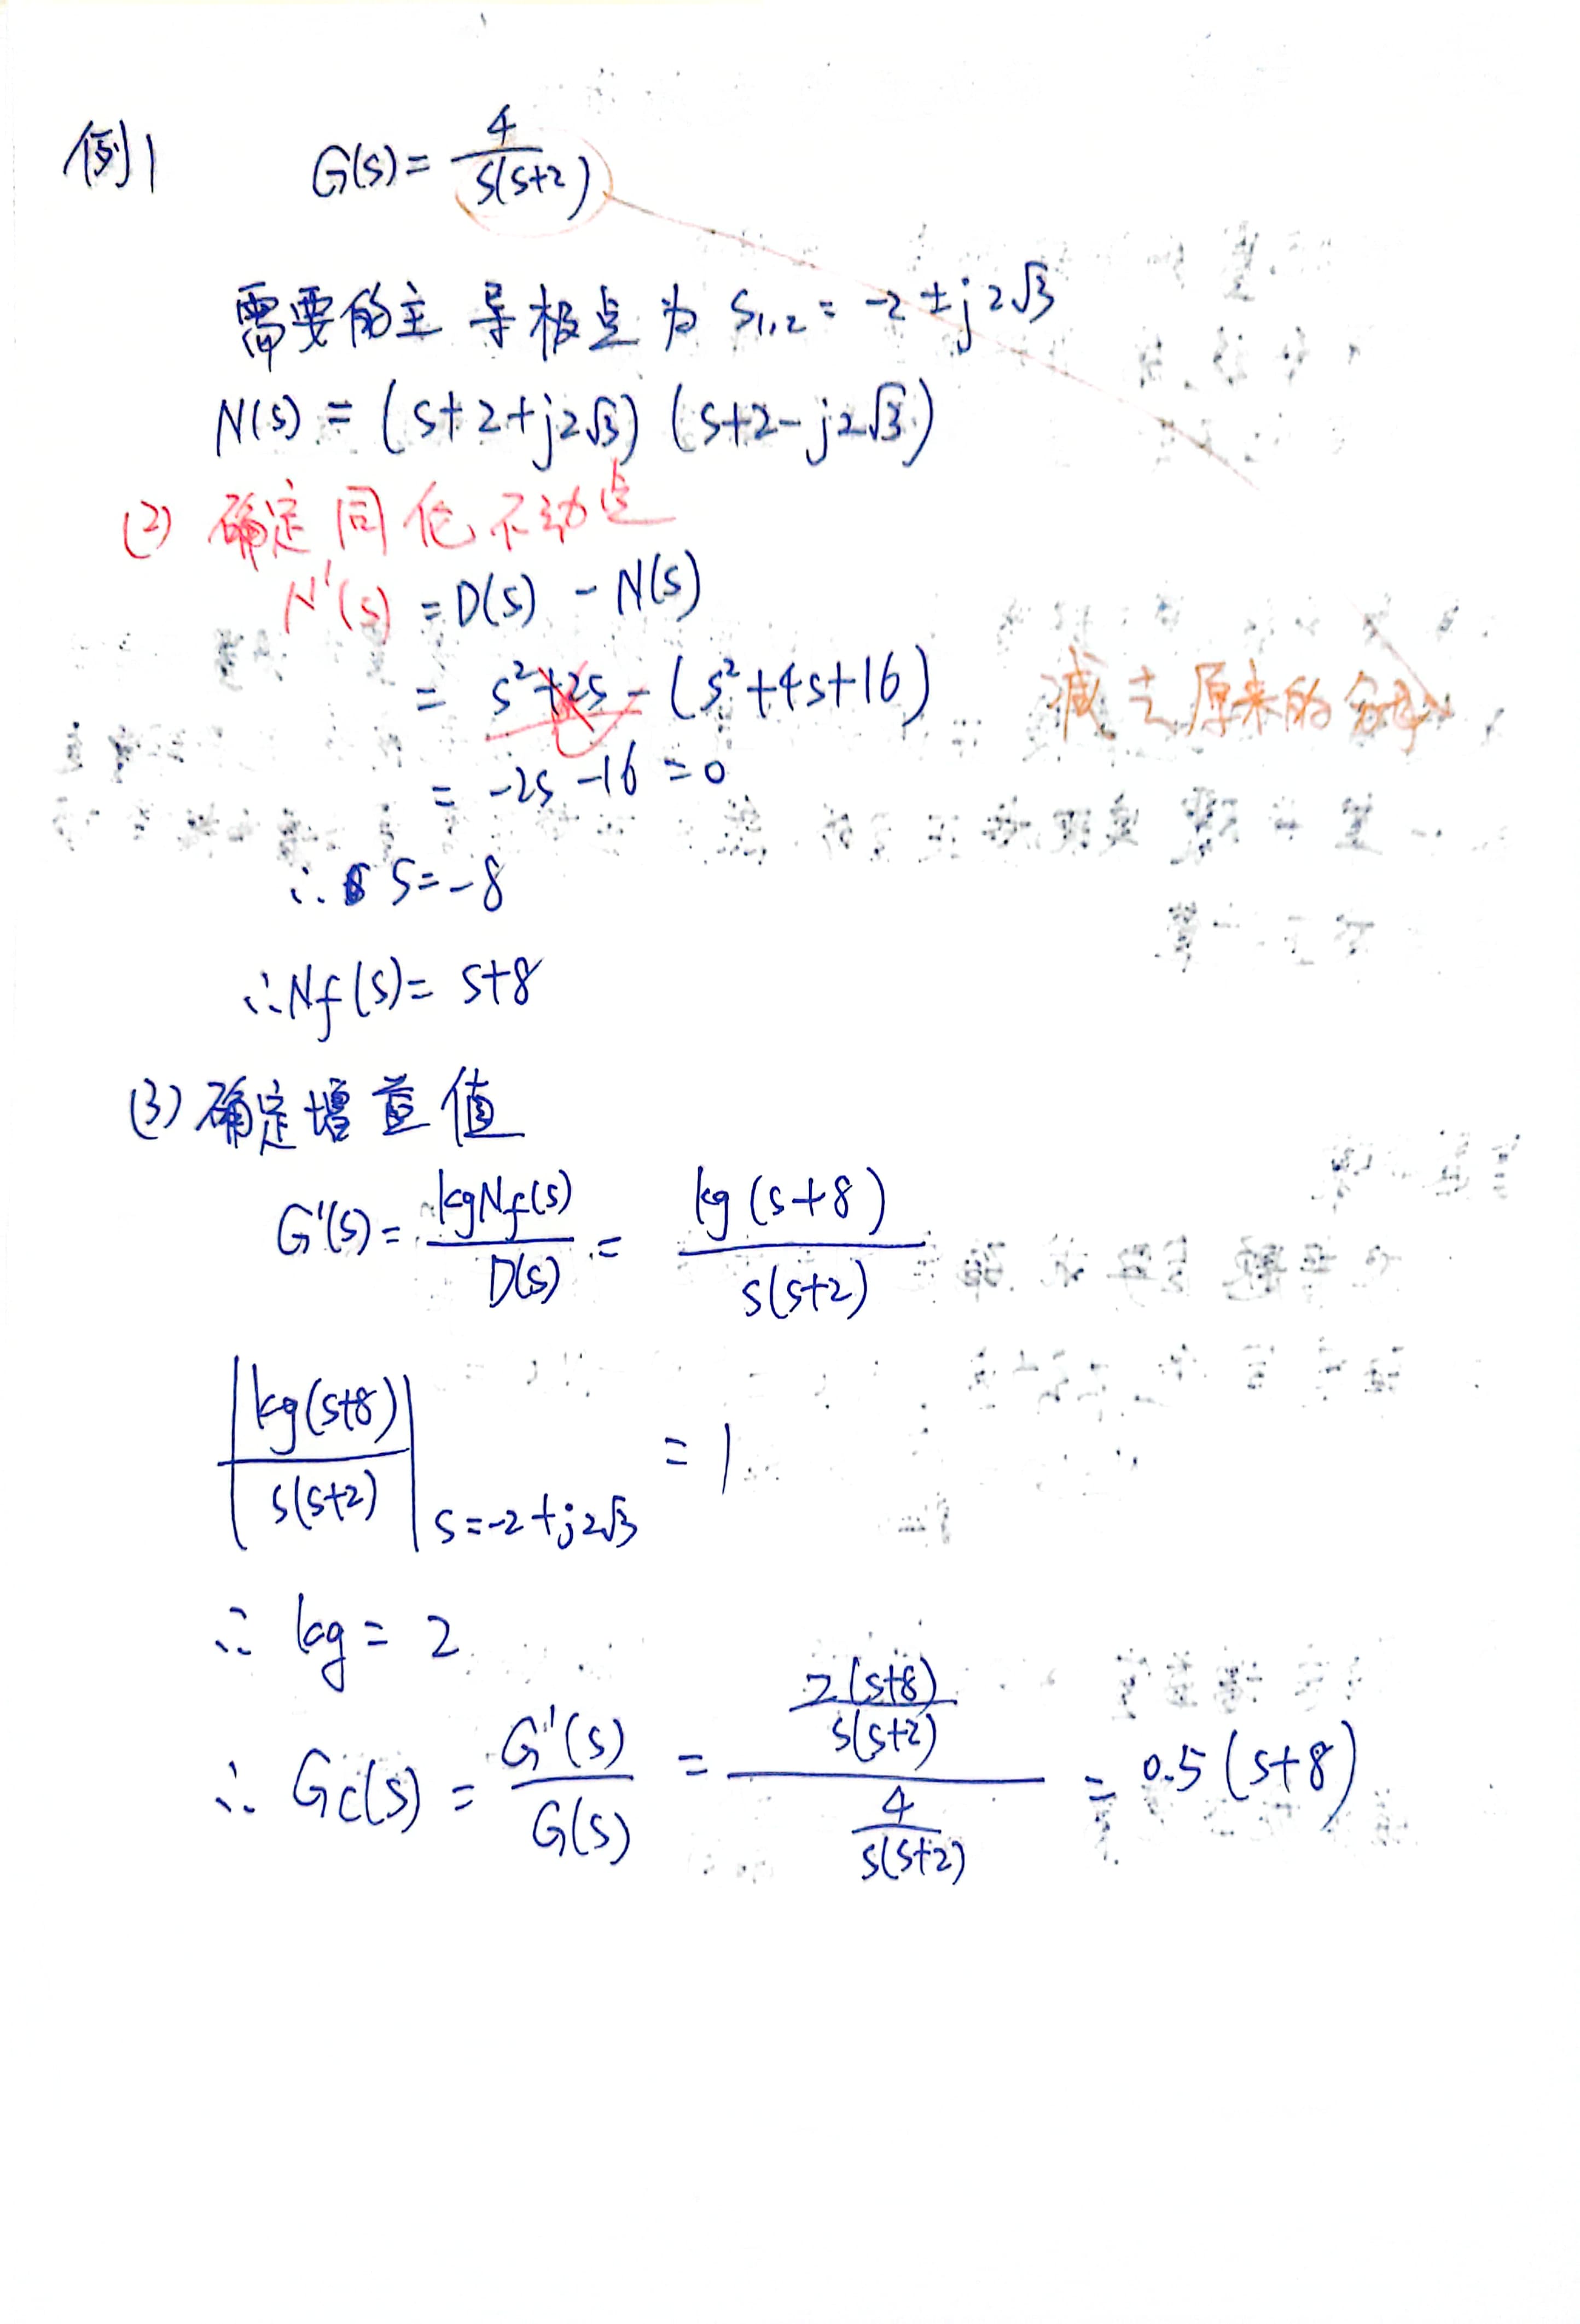 例1 G(s)= 4/(s(s+2))
需要的主导极点为 S₁,₂= -2±j2√3
N(s) = (s+2+j2√3)(s+2-j2√3)
(2) 确定同伦不动点
N'(s) = D(s) - N(s)
= s²+2s - (s²+4s+16) 减去原来的分母
= -2s-16=0
∴ s=-8
∴ Nf(s)= s+8
(3) 确定增益值
G'(s)= kgNf(s)/D(s) = kg(s+8)/(s(s+2))
|kg(s+8)/(s(s+2))| s=-2+j2√3 = 1
∴ kg= 2
∴ Gc(s) = G'(s)/G(s) = (2(s+8)/(s(s+2)))/(4/(s(s+2))) = 0.5(s+8)